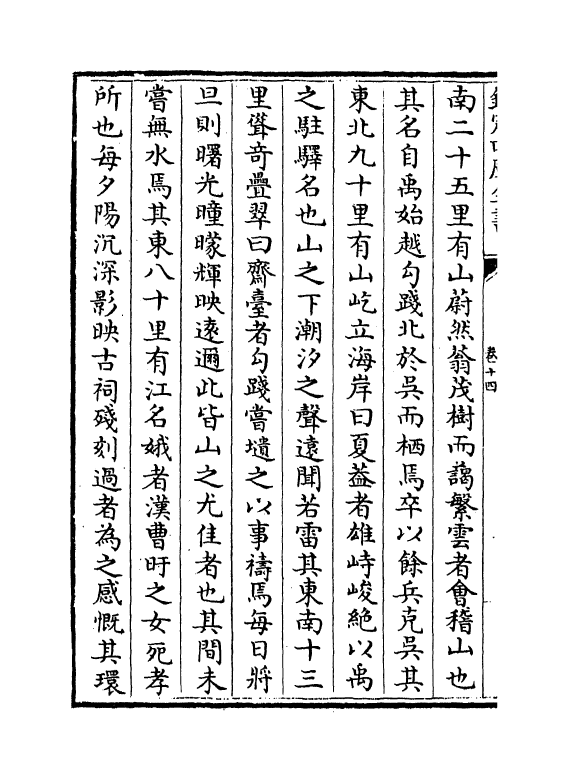 欽定四庫全書
卷十四
南二十五里有山蔚然蓊茂樹而藹繁雲者會稽山也
其名自禹始越勾踐北於吳而栖焉卒以餘兵克吳其
東北九十里有山屹立海岸曰夏葢者雄峙峻絶以禹
之駐驛名也山之下潮汐之聲遠聞若雷其東南十三
里聳奇疊翠曰齋臺者勾踐嘗壝之以事禱焉每日將
旦則曙光曈曚輝映遠邇此皆山之尤佳者也其間未
嘗無水焉其東八十里有江名娥者漢曹盱之女死孝
所也每夕陽沉深影映古祠殘刻過者為之感慨其環